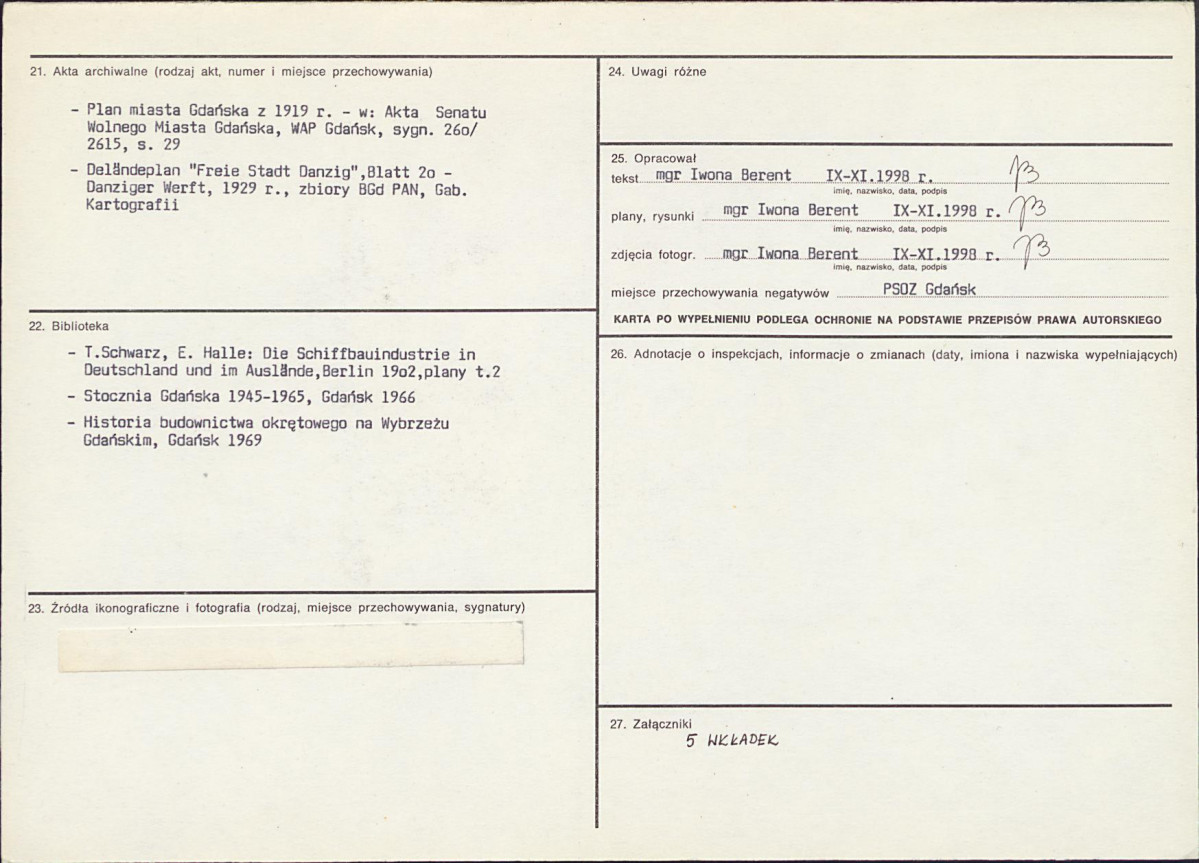 21. Akta archiwalne (rodzaj akt, numer i miejsce przechowywania)
- Plan miasta Gdańska z 1919 r. - w: Akta Senatu
Wolnego Miasta Gdańska, WAP Gdańsk, sygn. 26o/
2615, s. 29
- Deländeplan "Freie Stadt Danzig",Blatt 2o -
Danziger Werft, 1929 r., zbiory BGd PAN, Gab.
Kartografii
22. Biblioteka
- T.Schwarz, E. Halle: Die Schiffbauindustrie in
Deutschland und im Auslände,Berlin 19o2,plany t.2
- Stocznia Gdańska 1945-1965, Gdańsk 1966
- Historia budownictwa okrętowego na Wybrzeżu
Gdańskim, Gdańsk 1969
23. Źródła ikonograficzne i fotografia (rodzaj, miejsce przechowywania, sygnatury)
24. Uwagi różne
25. Opracował
tekst mgr Iwona Berent IX-XI.1998 r.
imię, nazwisko, data, podpis
plany, rysunki mgr Iwona Berent IX-XI.1998 r.
imię, nazwisko, data, podpis
zdjęcia fotogr. mgr Iwona Berent IX-XI.1998 r.
imię, nazwisko, data, podpis
miejsce przechowywania negatywów PSOZ Gdańsk
KARTA PO WYPEŁNIENIU PODLEGA OCHRONIE NA PODSTAWIE PRZEPISÓW PRAWA AUTORSKIEGO
26. Adnotacje o inspekcjach, informacje o zmianach (daty, imiona i nazwiska wypełniających)
27. Załączniki
5 WKŁADEK